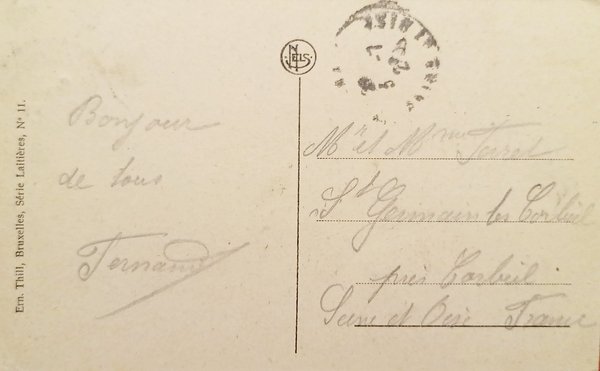 Ern. Thill, Bruxelles, Série Laitières, N° 11.
NELS
Bonjour
de tous
Fernand
Mr et Mme
St Germain les Corbeil
près Corbeil
Seine et Oise France